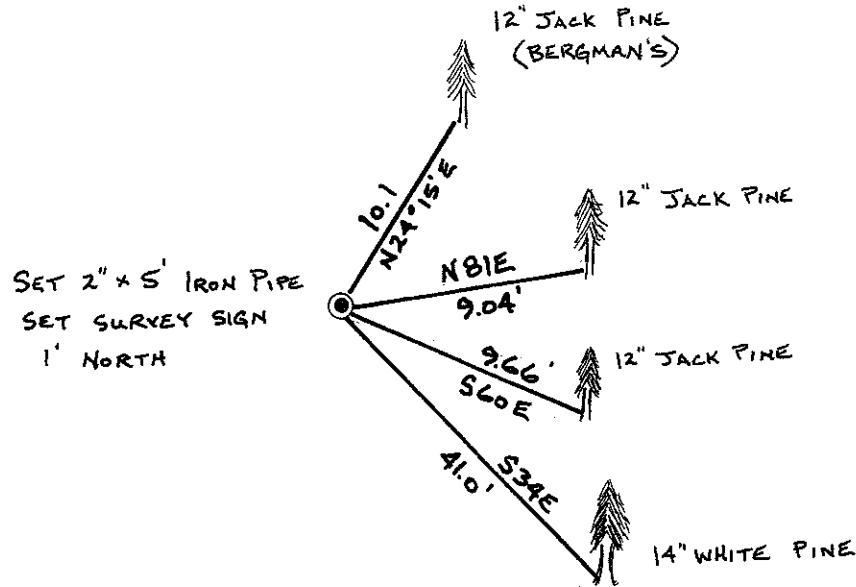 12" JACK PINE
(BERGMAN'S)
10.1
N24°15'E
12" JACK PINE
N81E
9.04'
SET 2" x 5' IRON PIPE
SET SURVEY SIGN
1' NORTH
9.66'
S60E
12" JACK PINE
S34E
41.0'
14" WHITE PINE